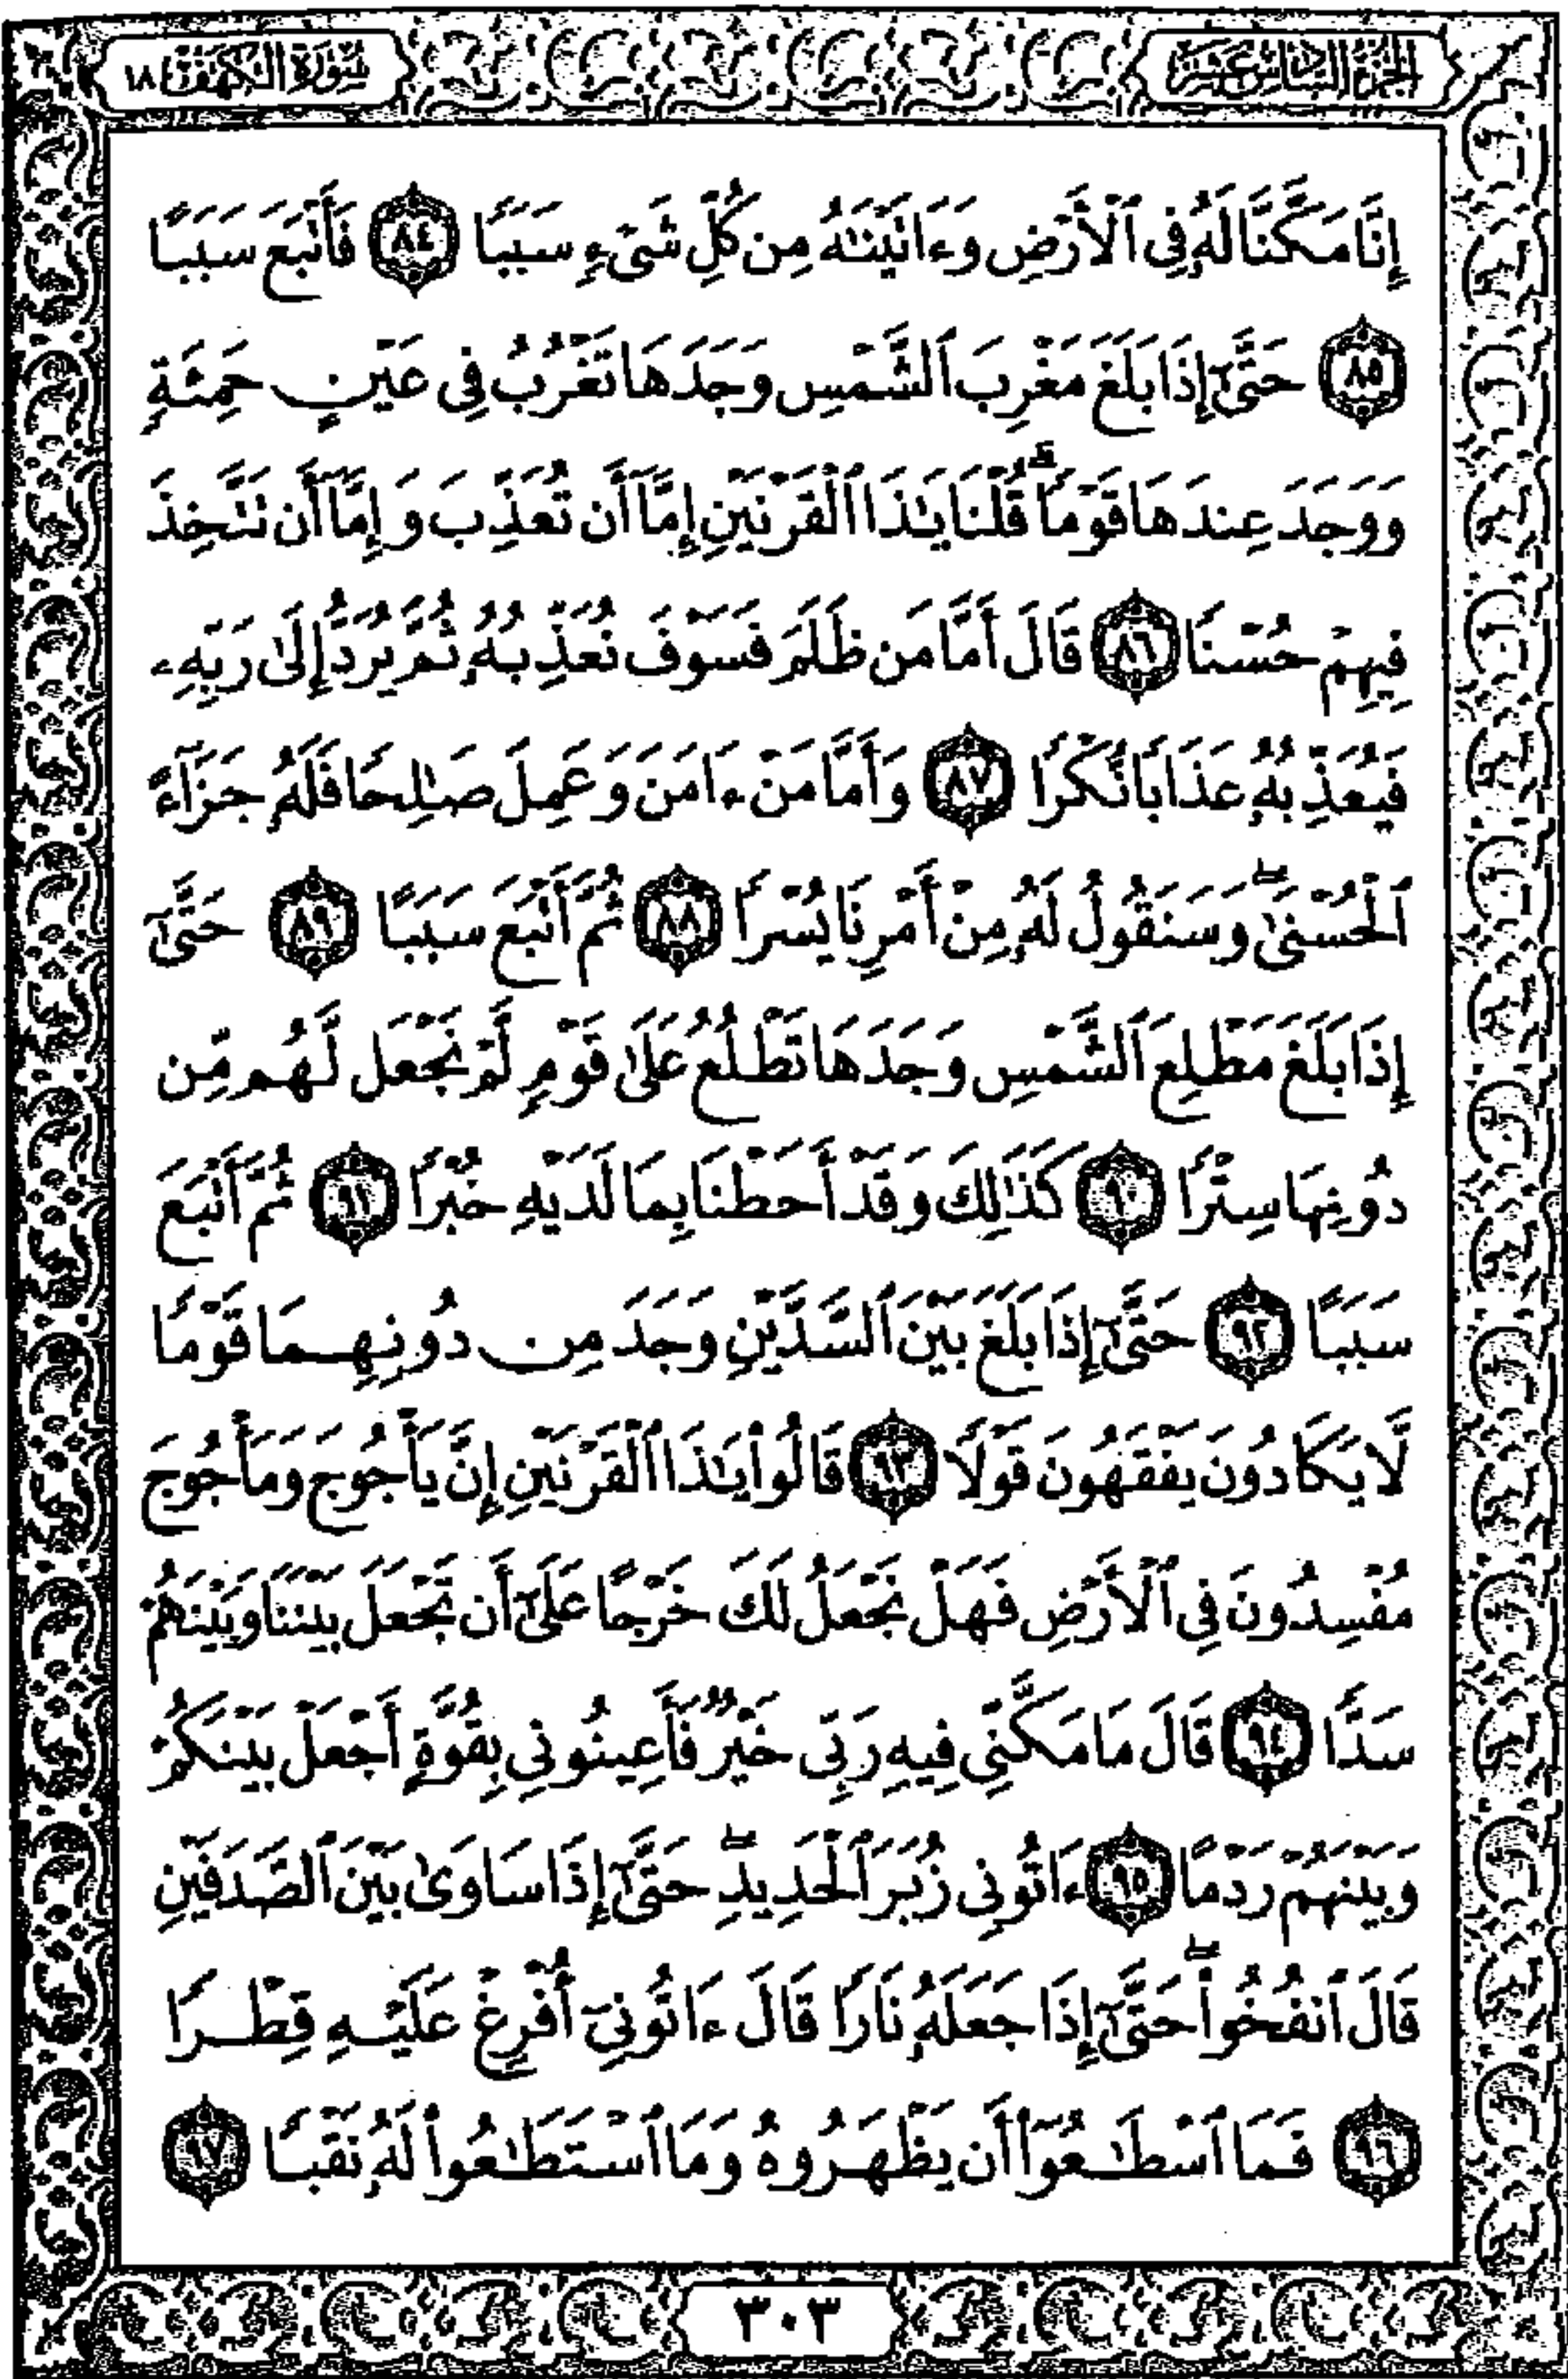 الجزء السادس عشر
سورة الكهف ١٨
إِنَّا مَكَّنَّا لَهُۥ فِى ٱلْأَرْضِ وَءَاتَيْنَـٰهُ مِن كُلِّ شَىْءٍ سَبَبًا ٨٤ فَأَتْبَعَ سَبَبًا
٨٥ حَتَّىٰٓ إِذَا بَلَغَ مَغْرِبَ ٱلشَّمْسِ وَجَدَهَا تَغْرُبُ فِى عَيْنٍ حَمِئَةٍ
وَوَجَدَ عِندَهَا قَوْمًا ۗ قُلْنَا يَـٰذَا ٱلْقَرْنَيْنِ إِمَّآ أَن تُعَذِّبَ وَإِمَّآ أَن تَتَّخِذَ
فِيهِمْ حُسْنًا ٨٦ قَالَ أَمَّا مَن ظَلَمَ فَسَوْفَ نُعَذِّبُهُۥ ثُمَّ يُرَدُّ إِلَىٰ رَبِّهِۦ
فَيُعَذِّبُهُۥ عَذَابًا نُّكْرًا ٨٧ وَأَمَّا مَنْ ءَامَنَ وَعَمِلَ صَـٰلِحًا فَلَهُۥ جَزَآءً
ٱلْحُسْنَىٰ ۖ وَسَنَقُولُ لَهُۥ مِنْ أَمْرِنَا يُسْرًا ٨٨ ثُمَّ أَتْبَعَ سَبَبًا ٨٩ حَتَّىٰٓ
إِذَا بَلَغَ مَطْلِعَ ٱلشَّمْسِ وَجَدَهَا تَطْلُعُ عَلَىٰ قَوْمٍ لَّمْ نَجْعَل لَّهُم مِّن
دُونِهَا سِتْرًا ٩٠ كَذَٰلِكَ وَقَدْ أَحَطْنَا بِمَا لَدَيْهِ خُبْرًا ٩١ ثُمَّ أَتْبَعَ
سَبَبًا ٩٢ حَتَّىٰٓ إِذَا بَلَغَ بَيْنَ ٱلسَّدَّيْنِ وَجَدَ مِن دُونِهِمَا قَوْمًا
لَّا يَكَادُونَ يَفْقَهُونَ قَوْلًا ٩٣ قَالُوا۟ يَـٰذَا ٱلْقَرْنَيْنِ إِنَّ يَأْجُوجَ وَمَأْجُوجَ
مُفْسِدُونَ فِى ٱلْأَرْضِ فَهَلْ نَجْعَلُ لَكَ خَرْجًا عَلَىٰٓ أَن تَجْعَلَ بَيْنَنَا وَبَيْنَهُمْ
سَدًّا ٩٤ قَالَ مَا مَكَّنِّى فِيهِ رَبِّى خَيْرٌ فَأَعِينُونِى بِقُوَّةٍ أَجْعَلْ بَيْنَكُمْ
وَبَيْنَهُمْ رَدْمًا ٩٥ ءَاتُونِى زُبَرَ ٱلْحَدِيدِ ۖ حَتَّىٰٓ إِذَا سَاوَىٰ بَيْنَ ٱلصَّدَفَيْنِ
قَالَ ٱنفُخُوا۟ ۖ حَتَّىٰٓ إِذَا جَعَلَهُۥ نَارًا قَالَ ءَاتُونِىٓ أُفْرِغْ عَلَيْهِ قِطْرًا
٩٦ فَمَا ٱسْطَـٰعُوٓا۟ أَن يَظْهَرُوهُ وَمَا ٱسْتَطَـٰعُوا۟ لَهُۥ نَقْبًا ٩٧
٣٠٣